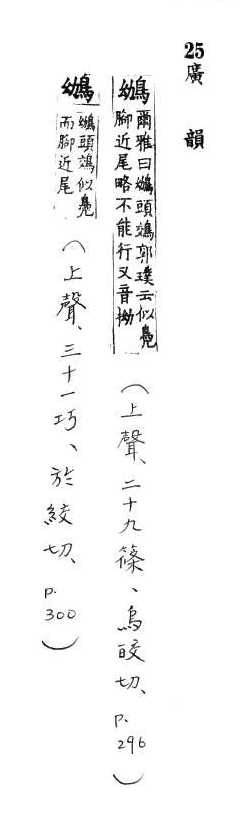 25廣韻
鴢
爾雅曰鴢頭鵁郭璞云似鳧
腳近尾略不能行又音拗
（上聲、二十九篠、烏皎切、p.296）
鴢
鴢頭鵁似鳧
而腳近尾
（上聲、三十一巧、於絞切、p.300）